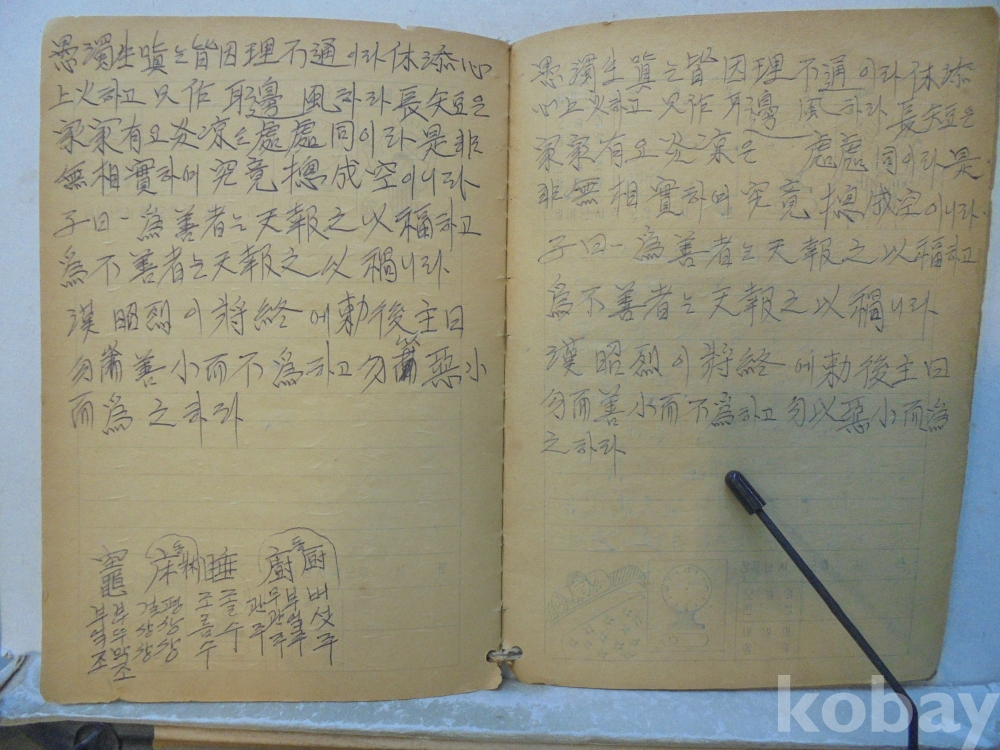 愚濁生嗔는皆因理不通이라休添心
上火하고只作耳邊風하라長短은
家家有요炎凉는處處同이라是非
無相實하여究竟摠成空이니라
子曰一爲善者는天報之以福하고
爲不善者는天報之以禍니라
漢昭烈이將終에勅後主曰
勿 善小而不爲하고勿 惡小
而爲之하라
竈 床 睡 廚 厨
부엌조
부두막조
평상상
졸수
조름수
부엌주
버섯주
愚濁生嗔는皆因理不通이라休添
心上火하고只作耳邊風하라長短은
家家有요炎凉은處處同이라是
非無相實하여究竟摠成空이니라
子曰一爲善者는天報之以福하고
爲不善者는天報之以禍니라
漢昭烈이將終에勅後主曰
勿而善小而不爲하고勿以惡小而爲
之하라
kobay